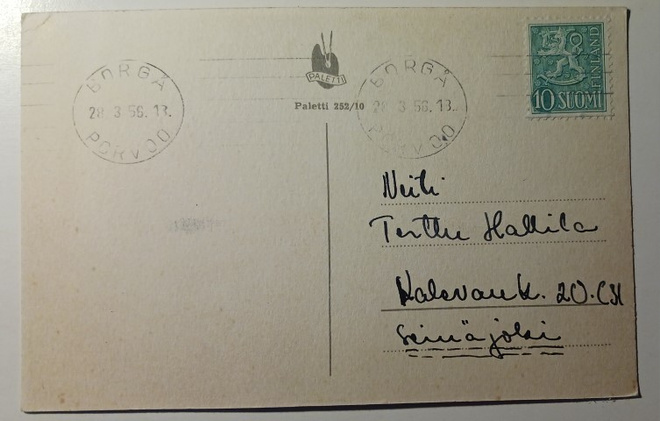 BORGÅ
28. 3. 56. 13.
PORVOO
PALETTI
Paletti 252/10
BORGÅ
28. 3. 56. 13.
PORVOO
10 SUOMI
FINLAND
Neiti
Terttu Hallila
Kalevank. 20.
Seinäjoki